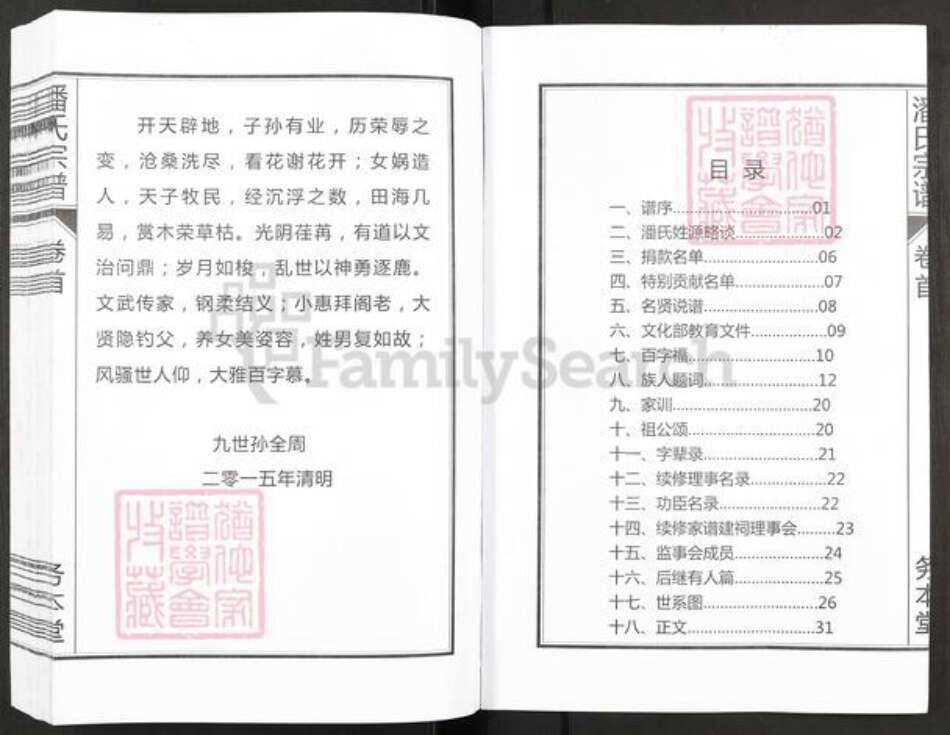 潘氏宗谱
卷首
务本堂
开天辟地，子孙有业，历荣辱之
变，沧桑洗尽，看花谢花开；女娲造
人，天子牧民，经沉浮之数，田海几
易，赏木荣草枯。光阴荏苒，有道以文
治问鼎；岁月如梭，乱世以神勇逐鹿。
文武传家，钢柔结义；小惠拜阁老，大
贤隐钓父，养女美姿容，姓男复如故；
风骚世人仰，大雅百字慕。
九世孙全周
二零一五年清明
猶他家
譜學會
收藏
FamilySearch
猶他家
譜學會
收藏
目录
一、谱序..................01
二、潘氏姓源略谈..................02
三、捐款名单..................06
四、特别贡献名单..................07
五、名贤说谱..................08
六、文化部教育文件..................09
七、百字福..................10
八、族人题词..................12
九、家训..................20
十、祖公颂..................20
十一、字辈录..................21
十二、续修理事名录..................22
十三、功臣名录..................22
十四、续修家谱建祠理事会.........23
十五、监事会成员..................24
十六、后继有人篇..................25
十七、世系图..................26
十八、正文..................31
潘氏宗谱
卷首
务本堂